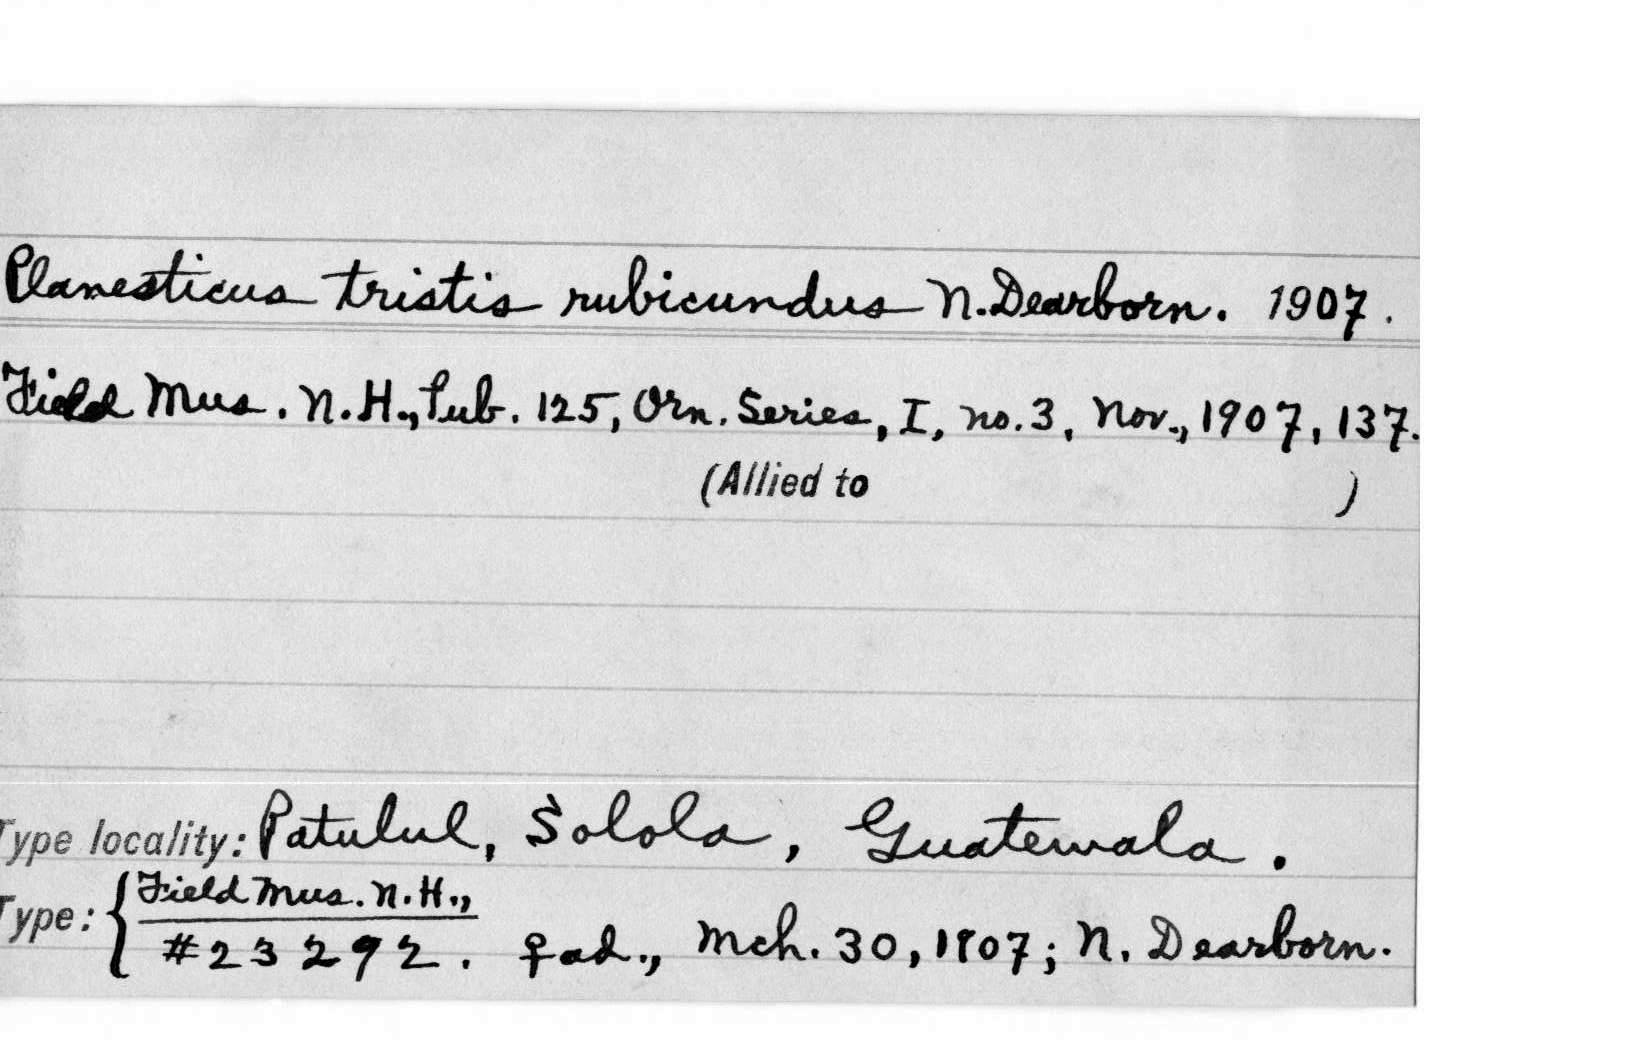 Planesticus tristis rubicundus N. Dearborn. 1907.
Field Mus. N.H., Pub. 125, Orn. Series, I, no. 3, Nov., 1907, 137.
(Allied to )
Type locality: Patulul, Solola, Guatemala.
Type: { Field Mus. N.H.,
#23292. ♀ ad., Mch. 30, 1907; N. Dearborn.